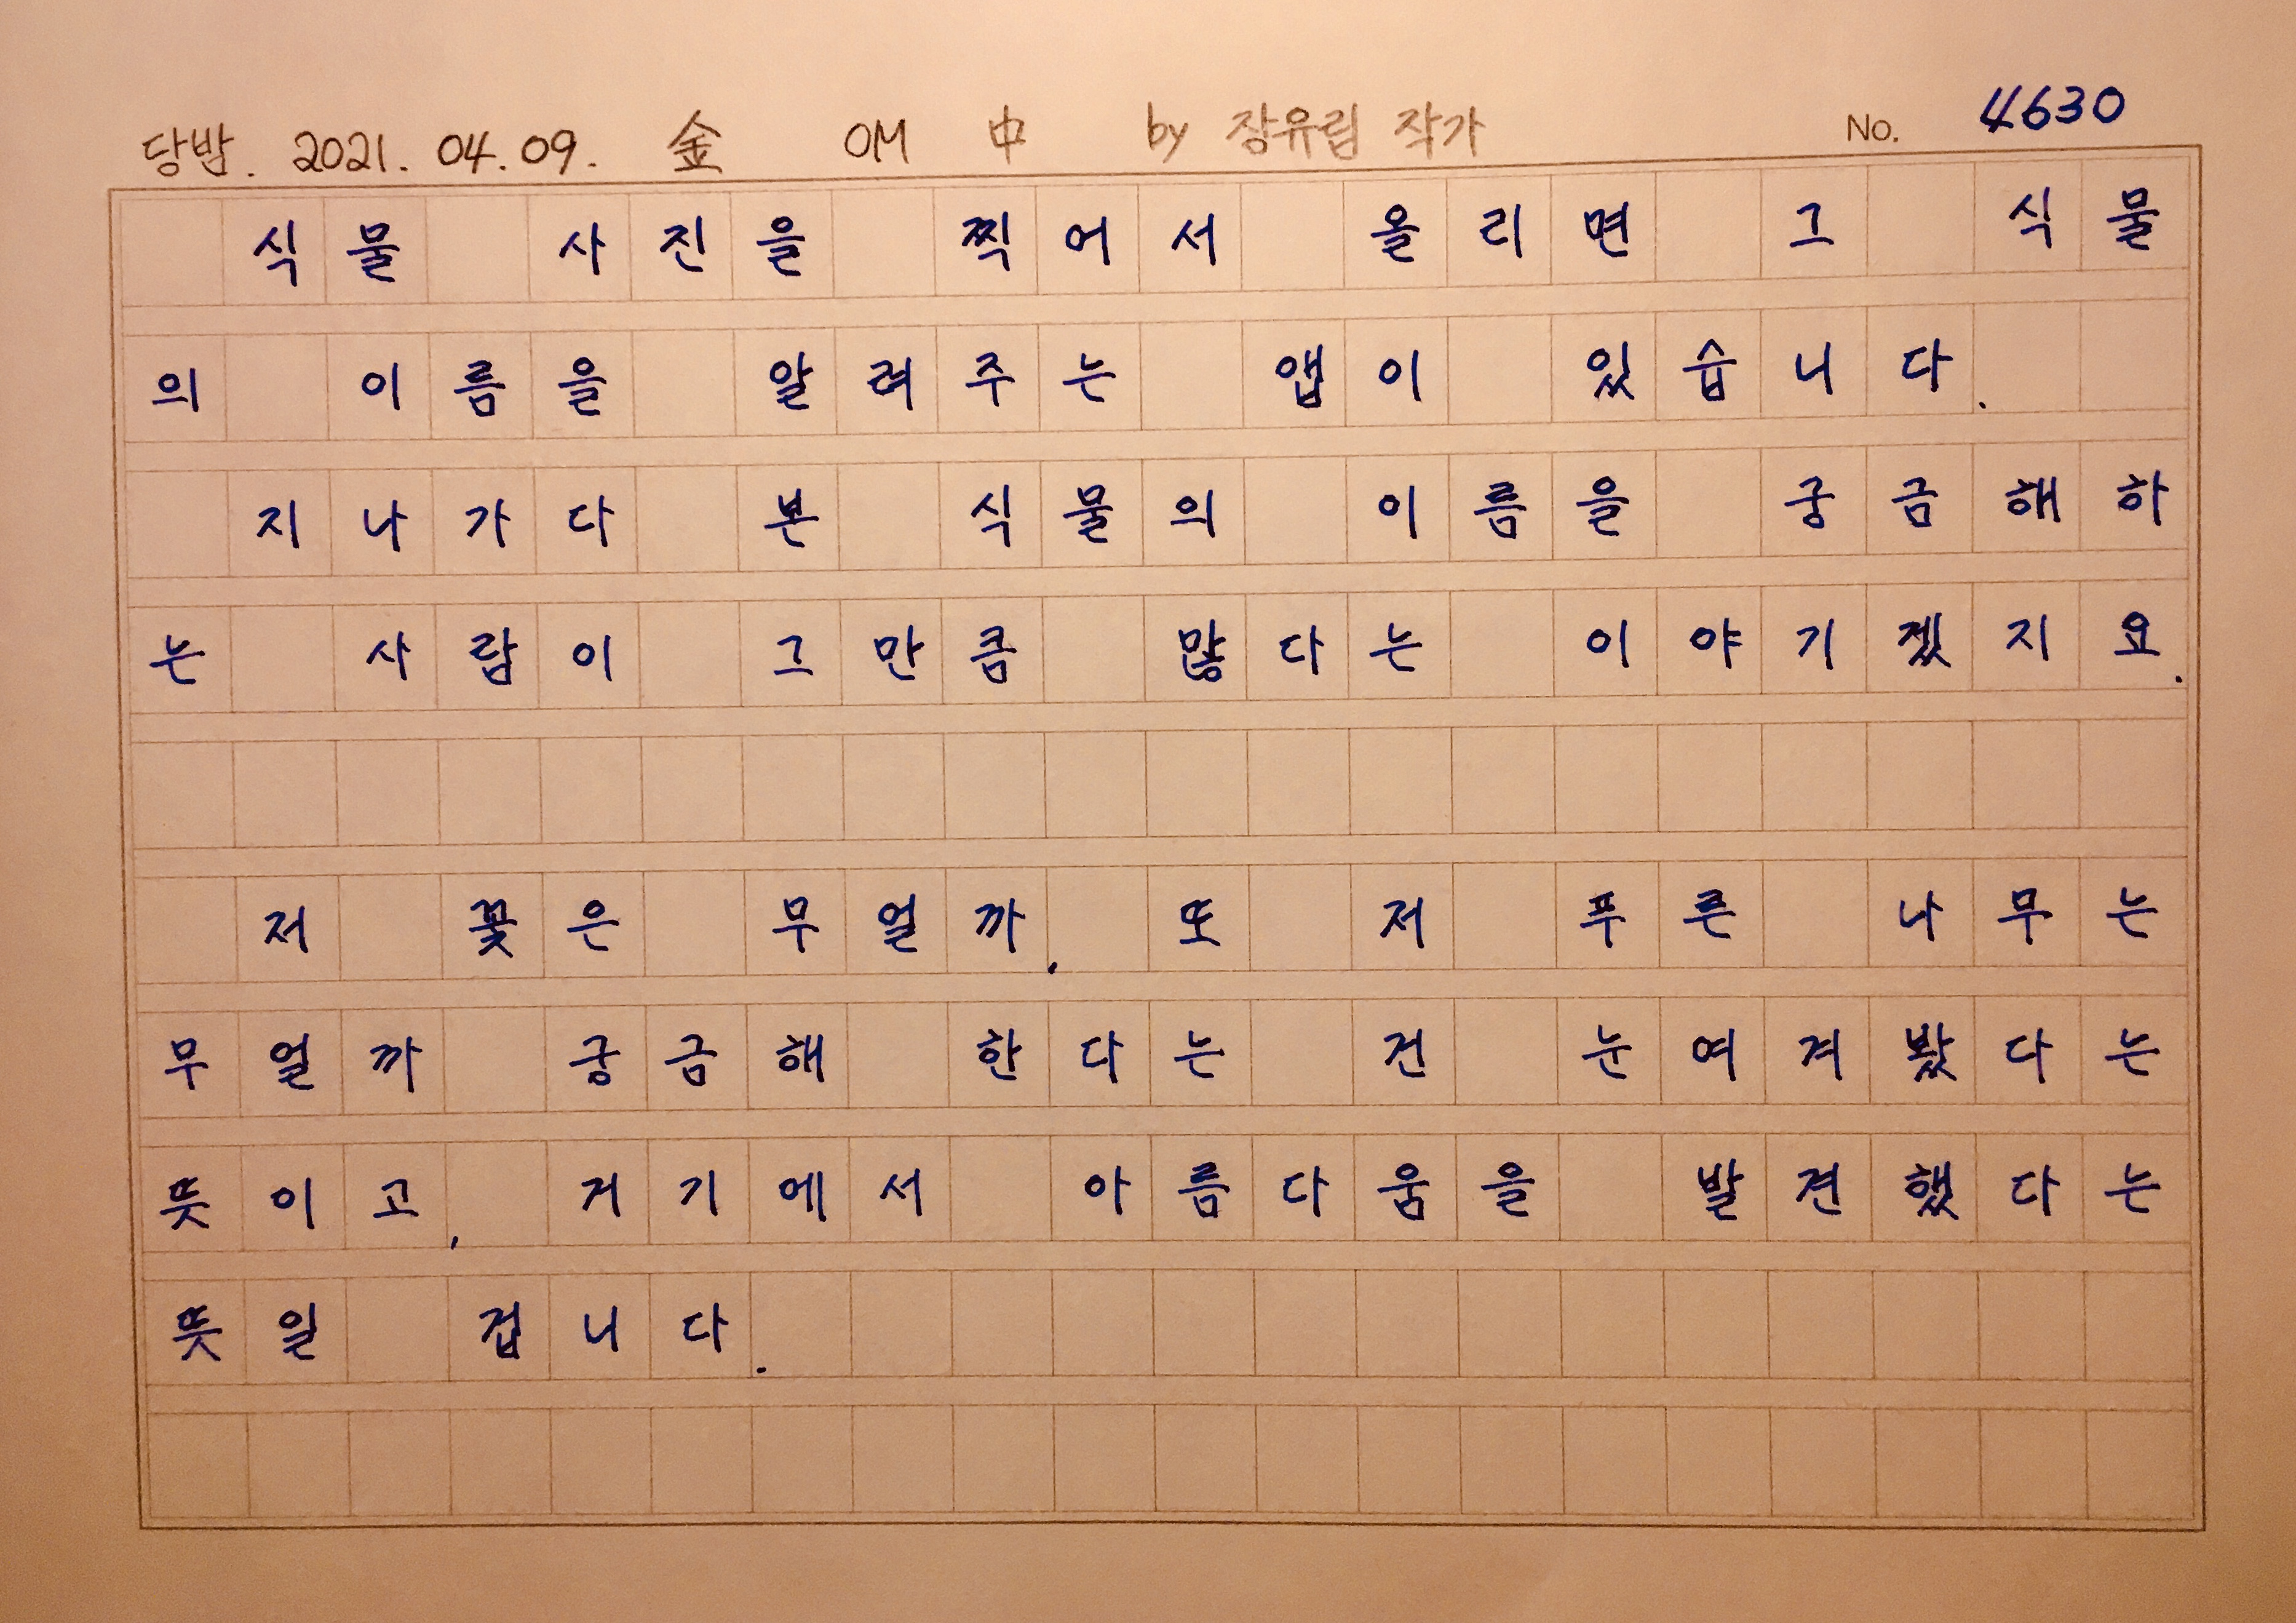 당밤. 2021. 04. 09. 金 OM 中 by 장유림 작가 No. 4630
식물 사진을 찍어서 올리면 그 식물
의 이름을 알려주는 앱이 있습니다.
지나가다 본 식물의 이름을 궁금해하
는 사람이 그만큼 많다는 이야기겠지요.
저 꽃은 무얼까. 또 저 푸른 나무는
무얼까 궁금해 한다는 건 눈여겨봤다는
뜻이고, 거기에서 아름다움을 발견했다는
뜻일 겁니다.